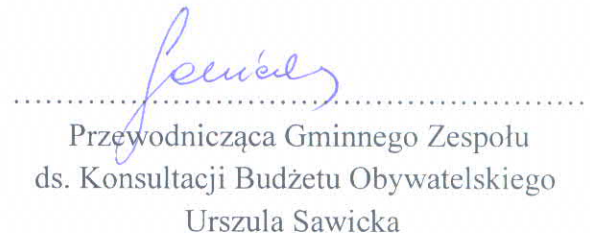 ................................................................
Przewodnicząca Gminnego Zespołu
ds. Konsultacji Budżetu Obywatelskiego
Urszula Sawicka